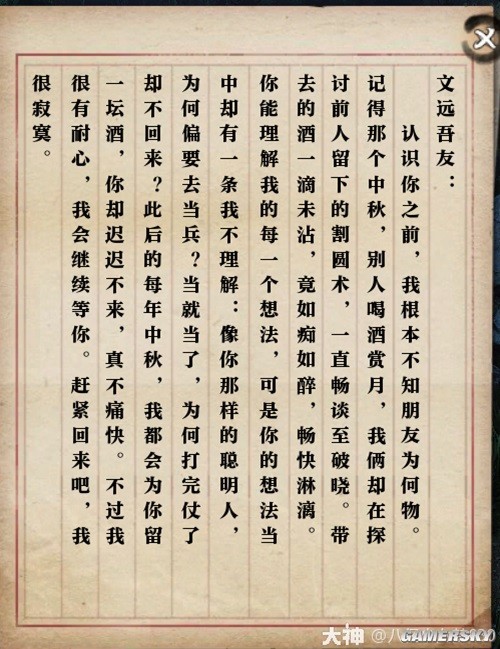 文远吾友：
认识你之前，我根本不知朋友为何物。
记得那个中秋，别人喝酒赏月，我俩却在探
讨前人留下的割圆术，一直畅谈至破晓。带
去的酒一滴未沾，竟如痴如醉，畅快淋漓。
你能理解我的每一个想法，可是你的想法当
中却有一条我不理解：像你那样的聪明人，
为何偏要去当兵？当就当了，为何打完仗了
却不回来？此后的每年中秋，我都会为你留
一坛酒，你却迟迟不来，真不痛快。不过我
很有耐心，我会继续等你。赶紧回来吧，我
很寂寞。
大神
GAMERSKY